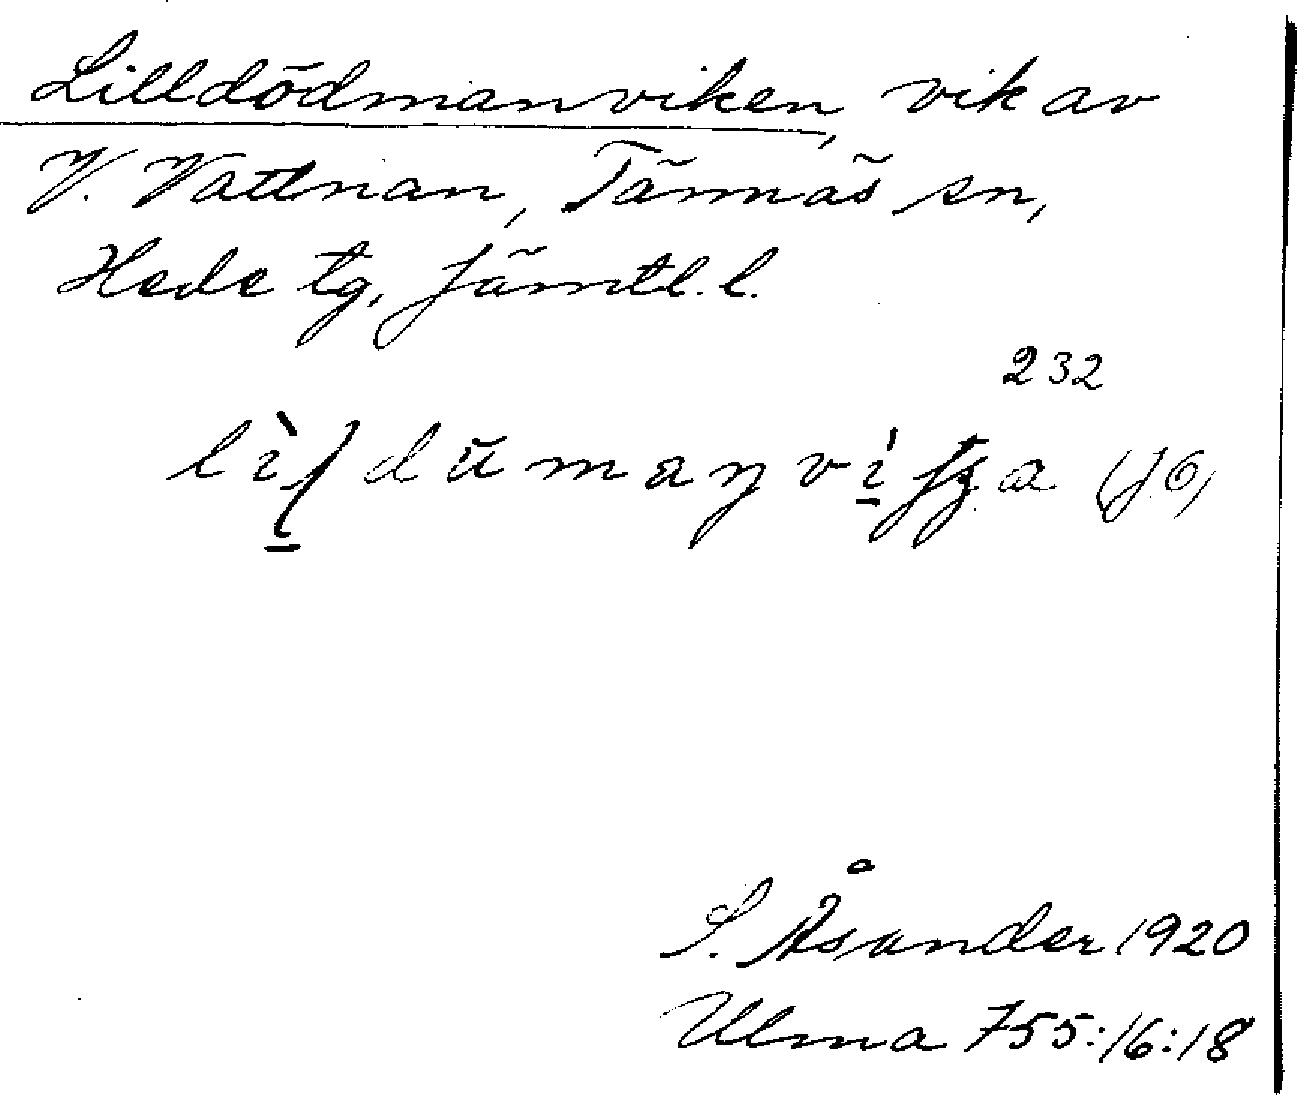 Lilldödmanviken, vik av
V. Vattnan, Tännäs sn,
Hede tg, Jämtl. l.
232
S. Åsander 1920
Ulma 755:16:18